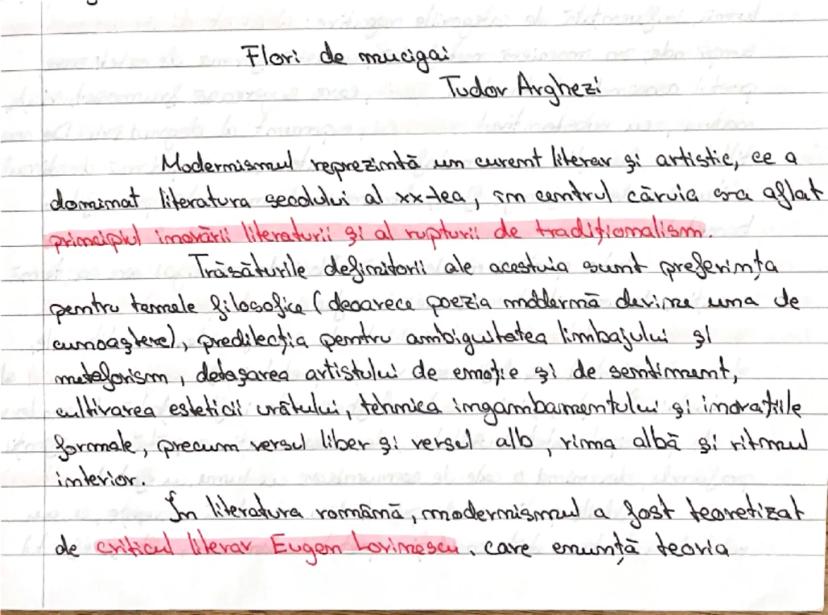 Flori de mucigai
Tudor Arghezi
Modernismul reprezintă un curent literar și artistic, ce a
dominat literatura secolului al xx-lea, în centrul căruia s-a aflat
principiul inovării literaturii și al rupturii de tradiționalism.
Trăsăturile definitorii ale acestuia sunt preferința
pentru temele filosofice (deoarece poezia modernă devine una de
cunoaștere), predilecția pentru ambiguitatea limbajului și
metaforism, detașarea artistului de emoție și de sentiment,
cultivarea esteticii urâtului, tehnica ingambamentului și inovațiile
formale, precum versul liber și versul alb, rima albă și ritmul
interior.
În literatura română, modernismul a fost teoretizat
de criticul literar Eugen Lovinescu, care enunță teoria